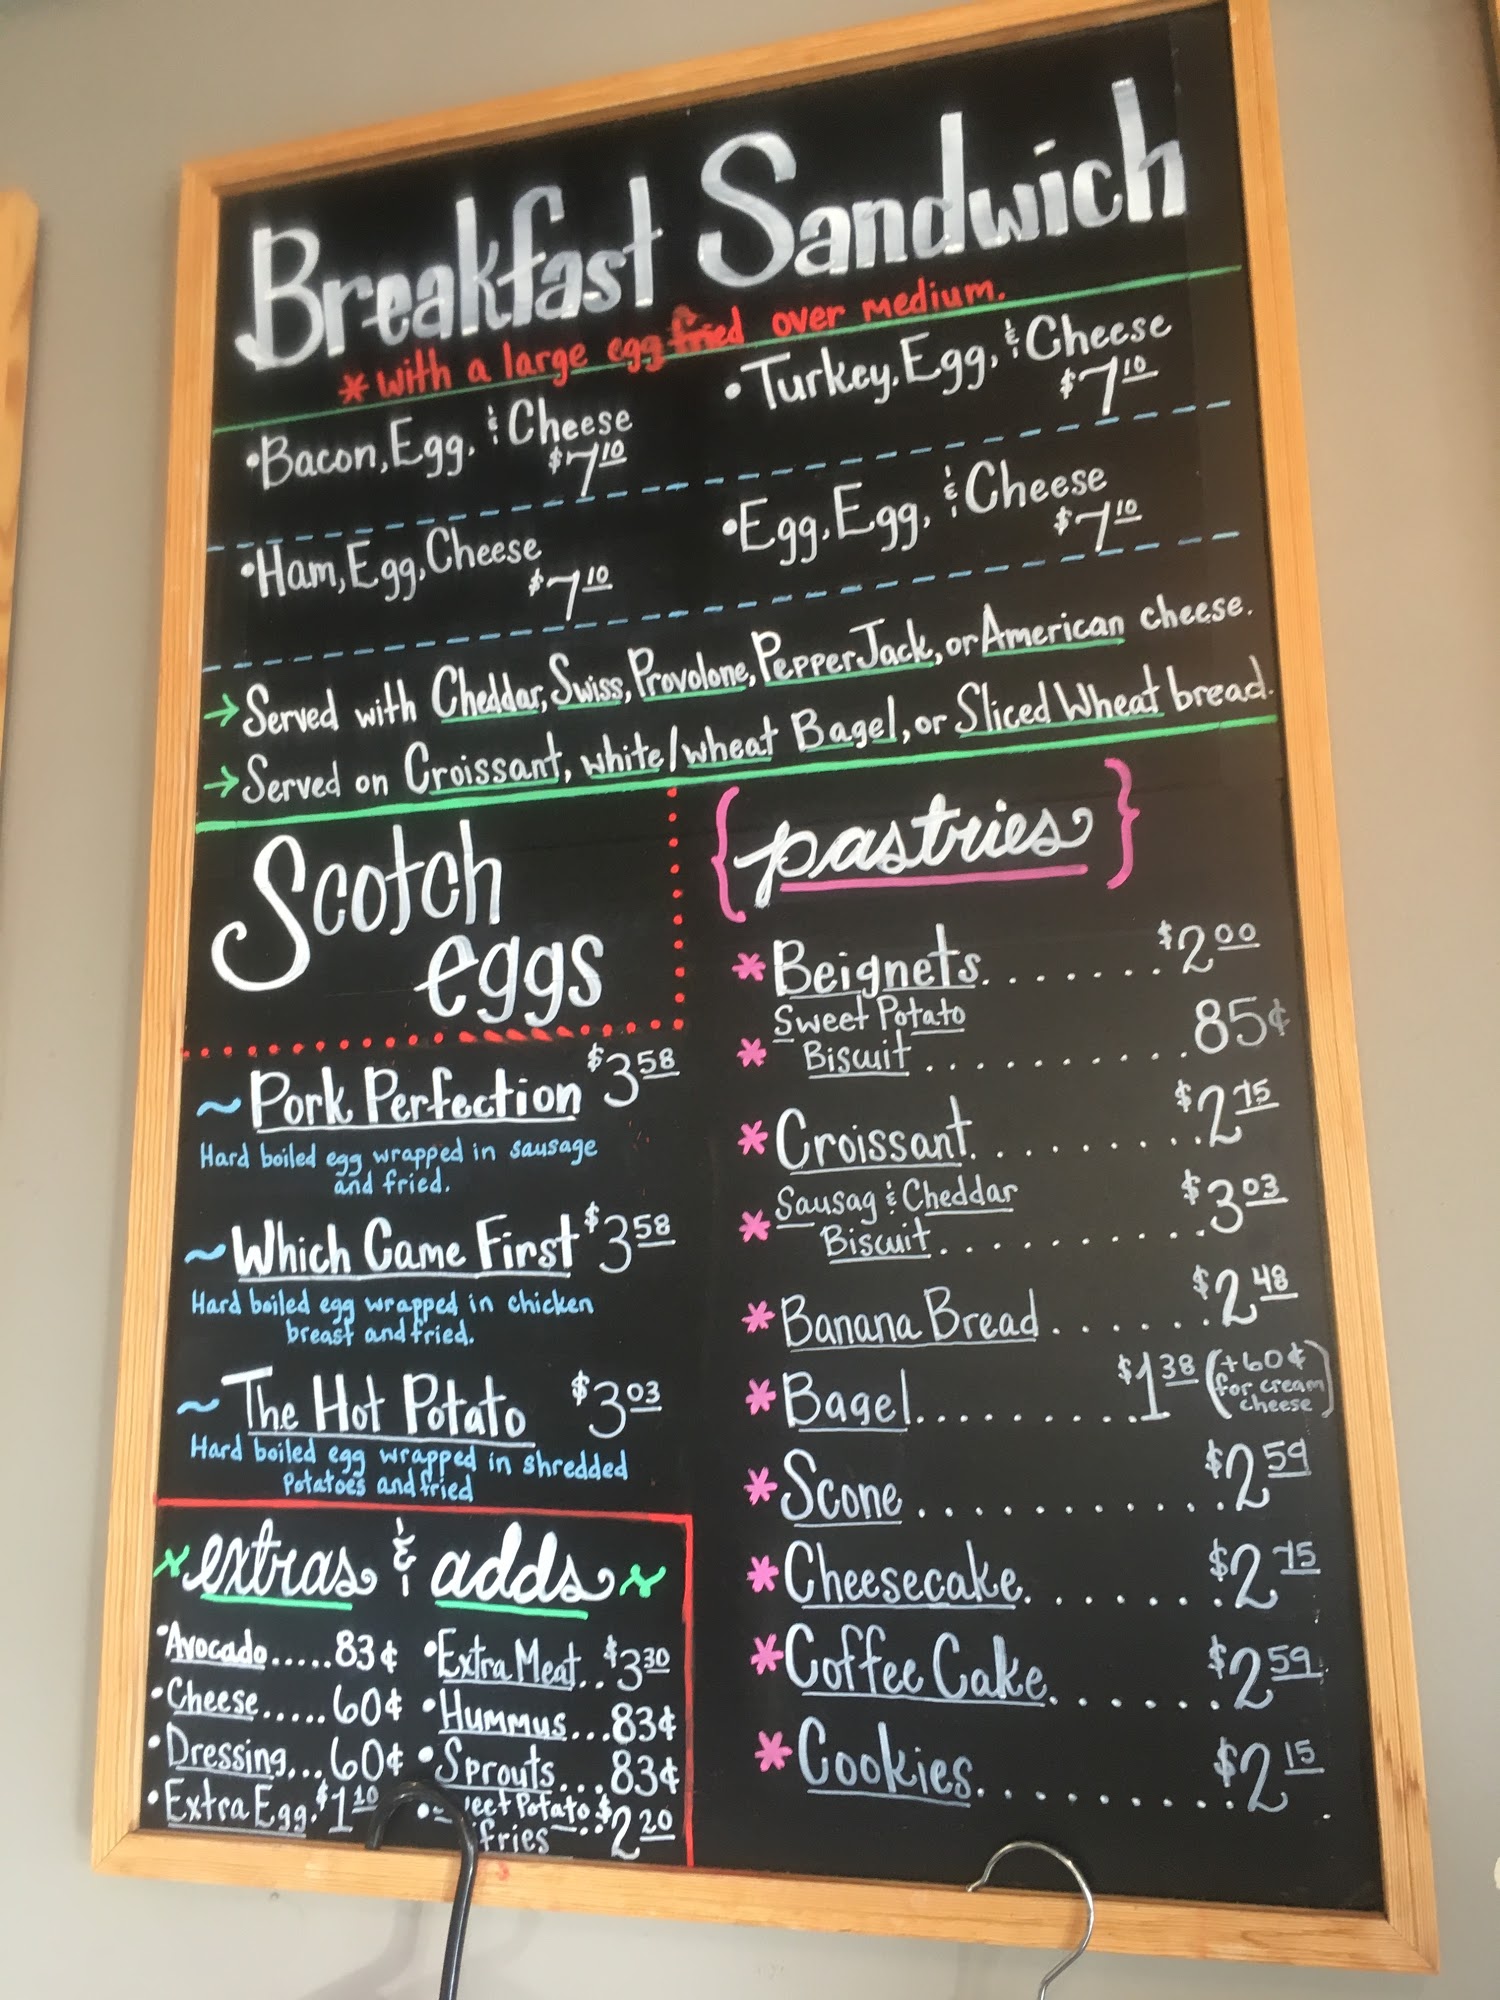 Breakfast Sandwich
* with a large egg fried over medium.
• Bacon, Egg, & Cheese
$7.10
• Turkey, Egg, & Cheese
$7.10
• Ham, Egg, Cheese
$7.10
• Egg, Egg, & Cheese
$7.10
→ Served with Cheddar, Swiss, Provolone, Pepper Jack, or American cheese.
→ Served on Croissant, white/wheat Bagel, or Sliced Wheat bread.
Scotch
eggs
~ Pork Perfection $3.58
Hard boiled egg wrapped in sausage
and fried.
~ Which Came First $3.58
Hard boiled egg wrapped in chicken
breast and fried.
~ The Hot Potato $3.03
Hard boiled egg wrapped in shredded
Potatoes and fried
extras & adds
• Avocado.....83¢
• Cheese.....60¢
• Dressing...60¢
• Extra Egg. $1.10
• Extra Meat..$3.30
• Hummus...83¢
• Sprouts...83¢
• Potato..$2.20
fries
{pastries}
* Beignets.......$2.00
Sweet Potato
* Biscuit..........85¢
* Croissant.........$2.75
Sausag & Cheddar
* Biscuit..........$3.03
* Banana Bread.......$2.48
* Bagel..........$1.38 (+60¢
for cream
cheese)
* Scone...........$2.59
* Cheesecake.......$2.75
* Coffee Cake......$2.59
* Cookies.........$2.15